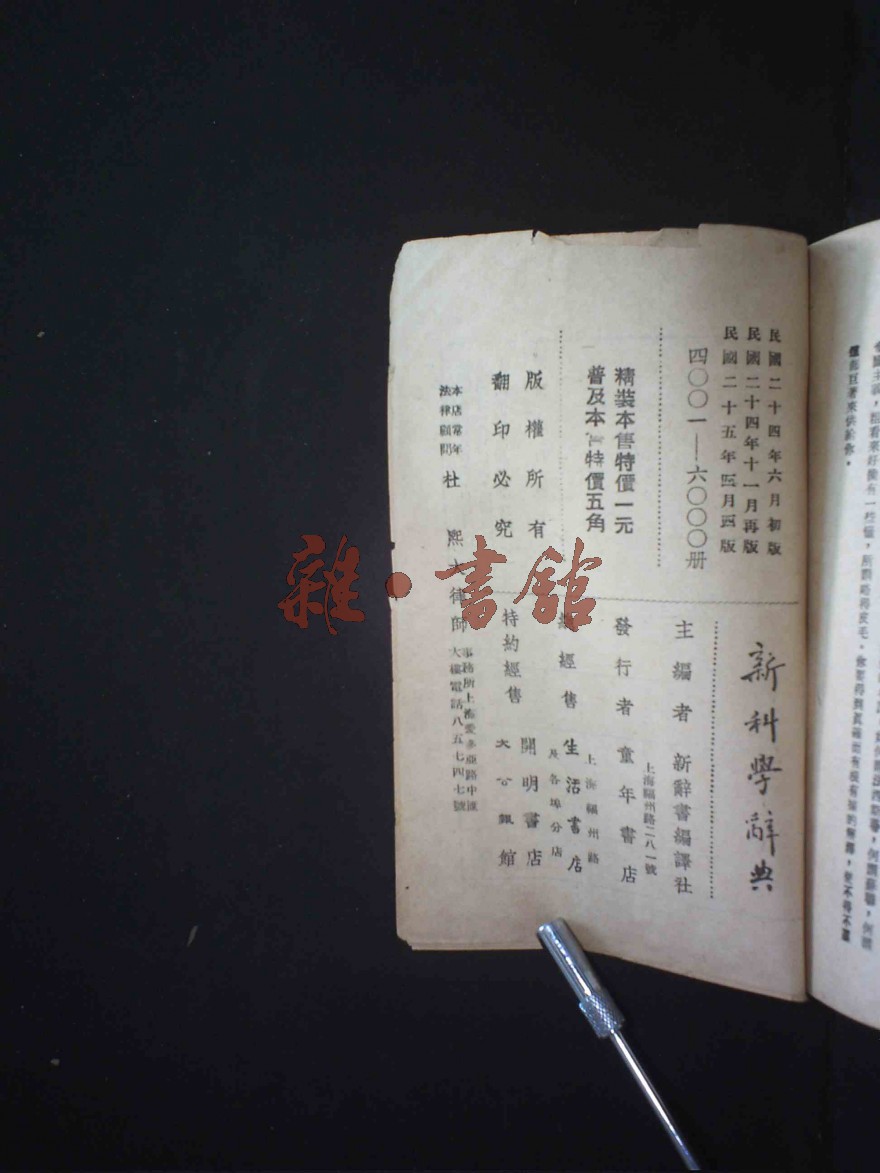 民國二十四年六月初版
民國二十四年十一月再版
民國二十五年四月四版
四〇〇一——六〇〇〇册
精裝本售特價一元
普及本售特價五角
版權所有
翻印必究
本店常年
法律顧問
杜熙大律師
事務所上海愛多亞路中匯
大樓電話八五七四七號
新科學辭典
主編者 新辭書編譯社
發行者 童年書店
上海福州路二八一號
經售 生活書店
上海福州路
及各埠分店
特約經售
開明書店
大公報館
雜·書館